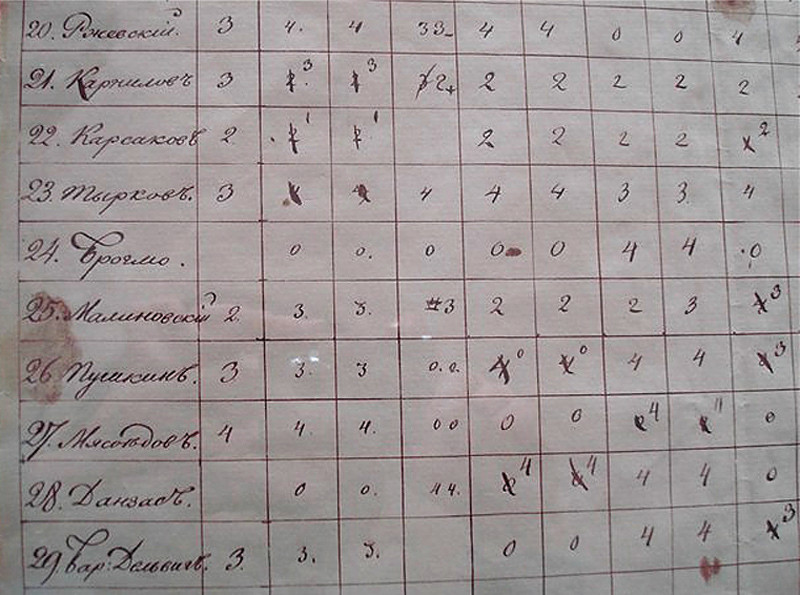 20. Ржевскій. 3 4. 4 33 4 4 0 0 4
21. Карниловъ 3 3 3 2 2 2 2 2 2
22. Карсаковъ 2 1 1 2 2 2 2 2
23. Тырковъ. 3 4 4 4 3 3. 4
24. Броглио. 0 0. 0 0 0 4 4 0
25. Малиновскій 2. 3. 3. 3 2 2 2 3 3
26 Пушкинъ. 3 3. 3 0.0. 0 0 4 4 3
27. Мясоѣдовъ. 4 4. 4. 00 0 0 4 4 0
28. Данзасъ. 0 0. 44. 4 4 4 4 0
29. Бар: Дельвигъ. 3. 3. 3. 0 0 4 4 3